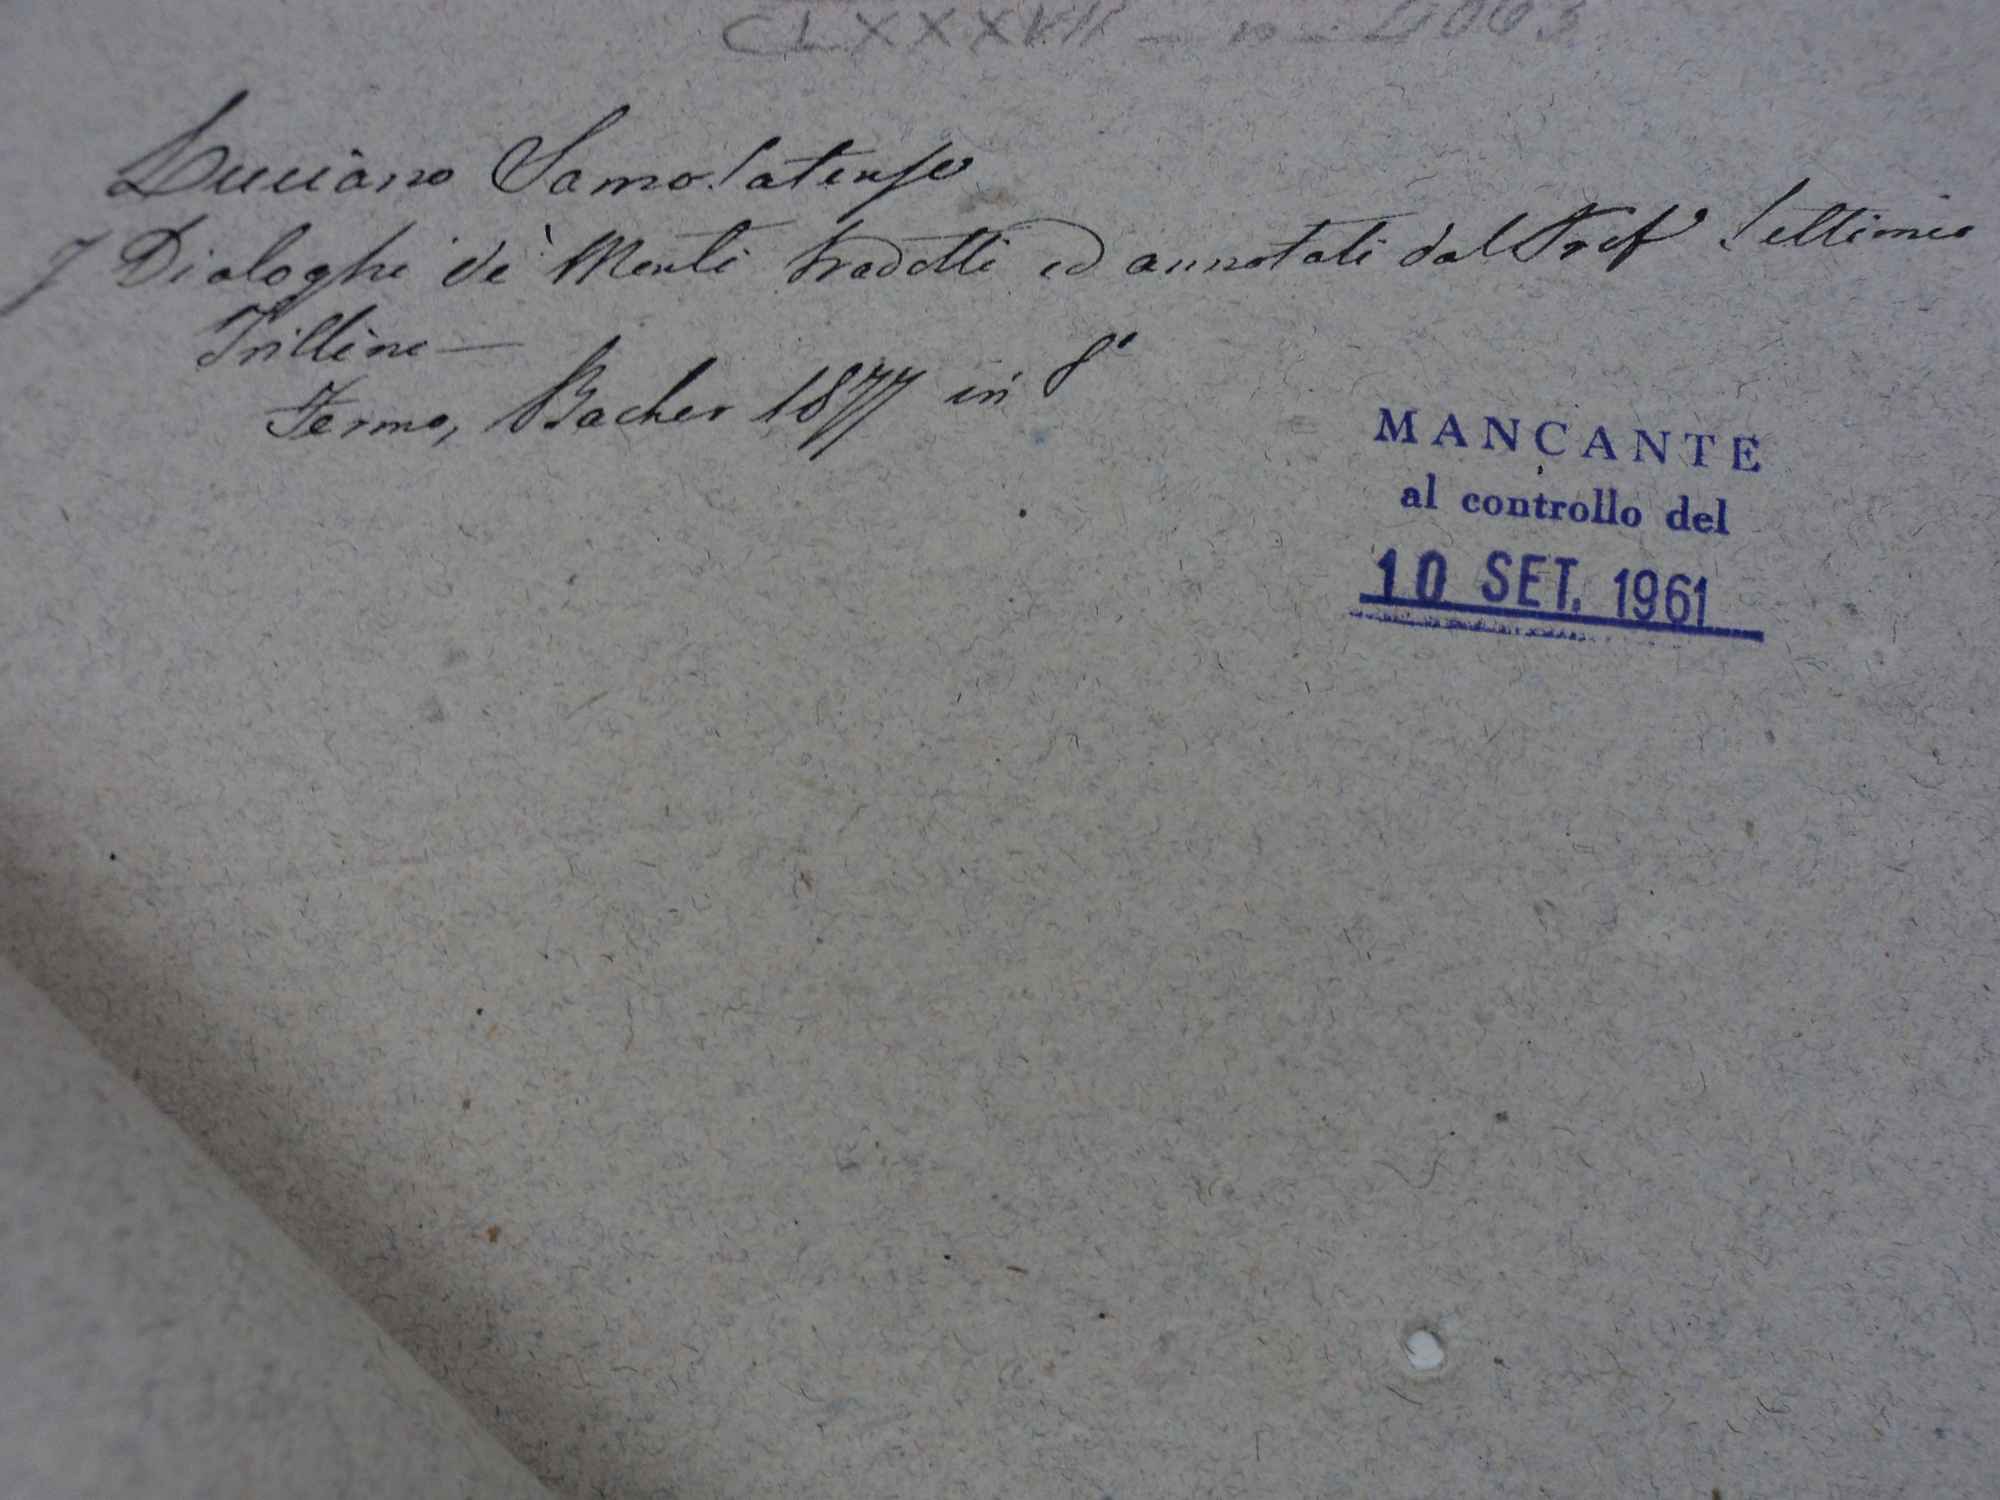 CLXXXVII – n – 4063
Luciano Samosatense
I Dialoghi de' Morti tradotti ed annotati dal Prof Settimio
Trillini —
Fermo, Bacher 1877 in 8°
MANCANTE
al controllo del
10 SET. 1961